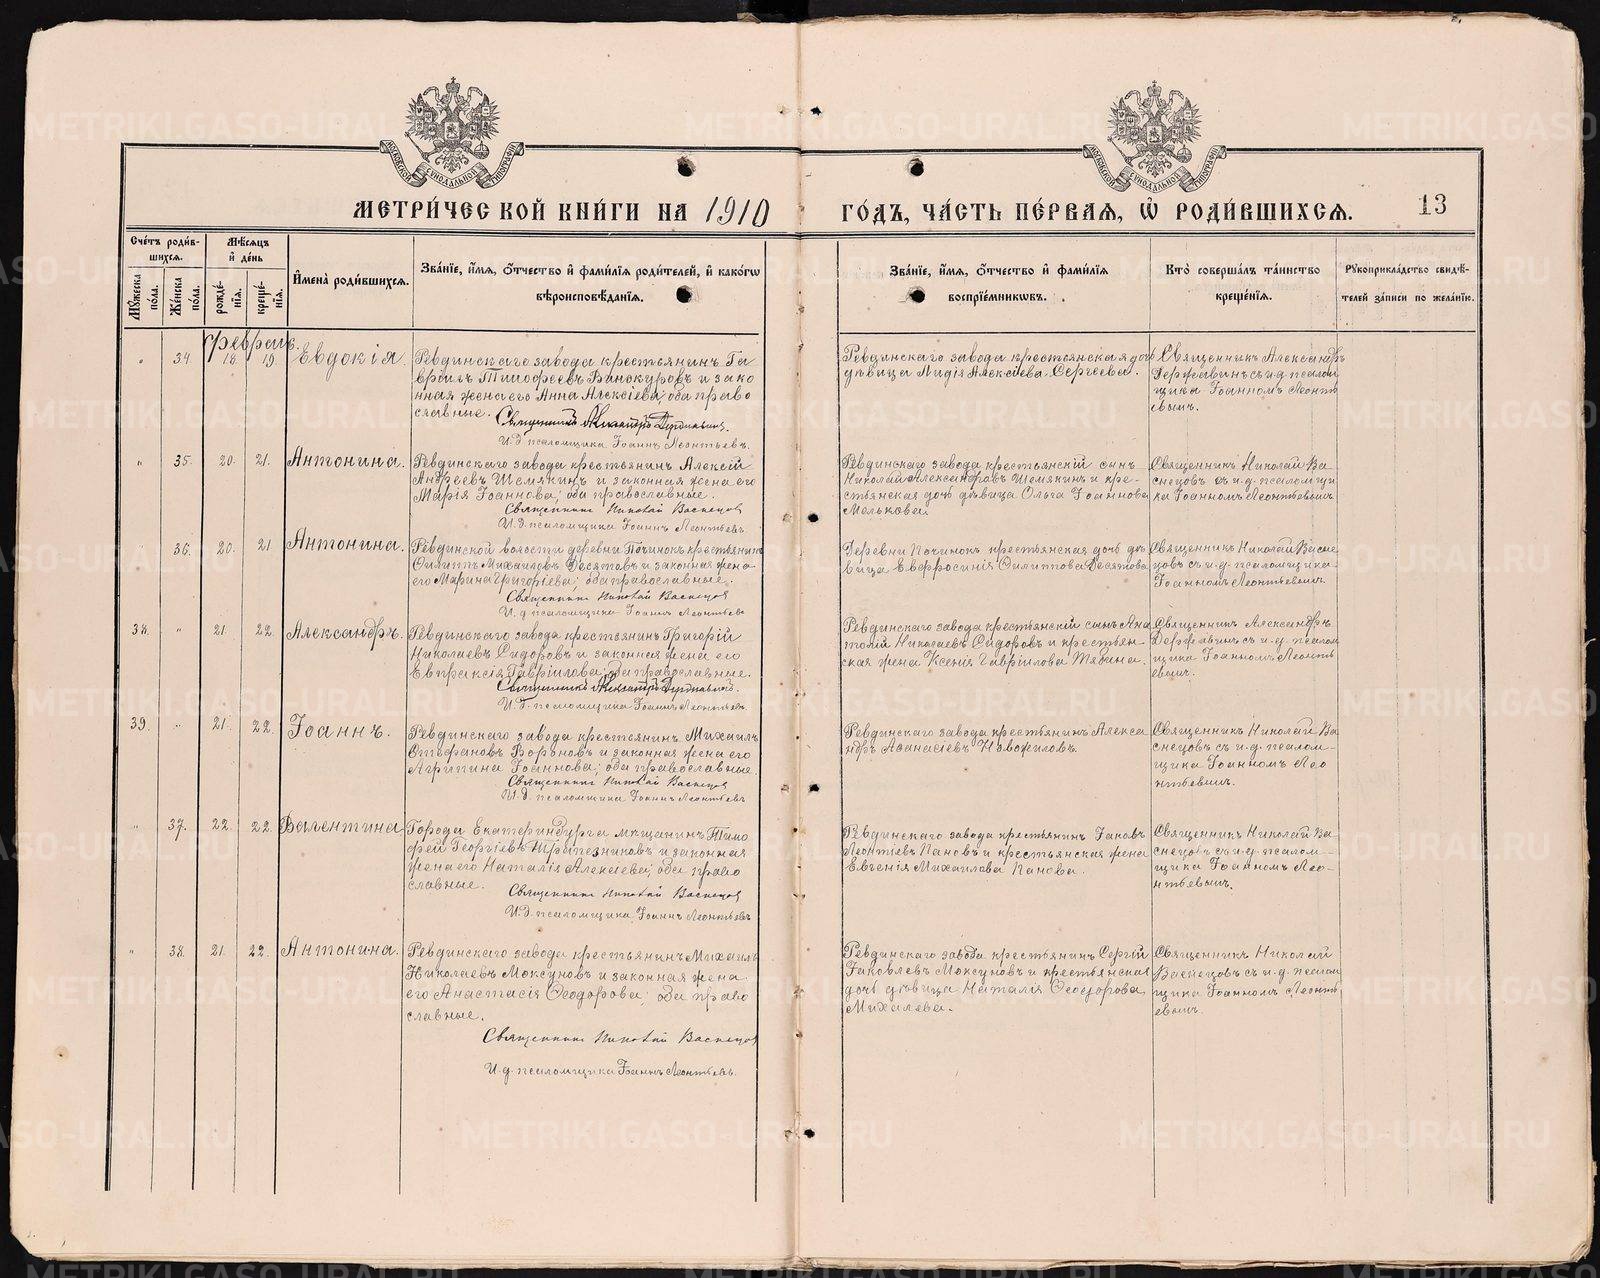 МЕТРИ́ЧЕСКОЙ КНИ́ГИ НА 1910
ГО́ДЪ, ЧА́СТЬ ПЕ́РВАѦ, Ѡ РОДИ́ВШИХСѦ.
13
Сче́тъ роди́в-
шихсѧ.
Мꙋ́жеска по́ла.
Же́нска по́ла.
Мѣ́сѧцъ
и҆ де́нь
рожде́-
нїѧ.
креще́-
нїѧ.
И҆мена̀ роди́вшихсѧ.
Зва́нїе, и҆́мѧ, ѻ҆́тчество и҆ фами́лїѧ роди́телей, и҆ како́гѡ
вѣроисповѣ́данїѧ.
Зва́нїе, и҆́мѧ, ѻ҆́тчество и҆ фами́лїѧ
воспрїе́мникѡвъ.
Кто̀ соверша́лъ та́инство
креще́нїѧ.
Рꙋкоприкла́дство свидѣ́-
телей за́писи по жела́нїю.
Февраль.
" 34 18. 19. Евдокія.
Ревдинскаго завода крестьянинъ Га
вріилъ Тимофеевъ Винокуровъ и зако
нная жена его Анна Алексіева; оба право
славные.
Священникъ Александръ Державинъ.
И.д. псаломщика Іоаннъ Леонтьевъ.
Ревдинскаго завода крестьянская дочь
дѣвица Лидія Алексіева Сергеева.
Священникъ Александръ
Державинъ съ и.д. псалом
щика Іоанномъ Леонть
евымъ.
" 35. 20. 21. Антонина.
Ревдинскаго завода крестьянинъ Алексій
Андреевъ Шемякинъ и законная жена его
Марія Іоаннова; оба православные.
Священникъ Николай Васнецовъ
И.д. псаломщика Іоаннъ Леонтьевъ
Ревдинскаго завода крестьянскій сынъ
Николай Александровъ Шемякинъ и кре-
стьянская дочь дѣвица Ольга Іоаннова
Мелькова.
Священникъ Николай Ва
снецовъ съ и.д. псаломщи
ка Іоанномъ Леонтьевымъ
" 36. 20. 21 Антонина.
Ревдинской волости деревни Починокъ крестьянинъ
Филиппъ Михаиловъ Десятовъ и законная жена
его Марина Григоріева; оба православные.
Священникъ Николай Васнецовъ
И.д псаломщика Іоаннъ Леонтьевъ
Деревни Починокъ крестьянская дочь дѣ
вица Евфросинія Филиппова Десятова
Священникъ Николай Васне
цовъ съ и.д. псаломщика
Іоанномъ Леонтьевымъ.
38. " 21. 22. Александръ.
Ревдинскаго завода крестьянинъ Григорій
Николаевъ Сидоровъ и законная жена его
Евпраксія Гавріилова; оба православные.
Священникъ Александръ Державинъ.
И.д. псаломщика Іоаннъ Леонтьевъ.
Ревдинскаго завода крестьянскій сынъ Ана
толій Николаевъ Сидоровъ и крестьян-
ская жена Ксенія Гавріилова
Священникъ Александръ
Державинъ съ и.д. псалом
щика Іоанномъ Леонть
евымъ.
39. " 21. 22. Іоаннъ.
Ревдинскаго завода крестьянинъ Михаилъ
Стефановъ Вороновъ и законная жена его
Агрипина Іоаннова; оба православные.
Священникъ Николай Васнецовъ
И.д. псаломщика Іоаннъ Леонтьевъ
Ревдинскаго завода крестьянинъ Алекса
ндръ Афанасіевъ Новофиловъ.
Священникъ Николай Ва
снецовъ съ и.д. псалом-
щика Іоанномъ Лео
нтьевымъ.
" 37. 22. 22. Валентина
Города Екатеринбурга мѣщанинъ Тимо
фей Георгіевъ Трапезниковъ и законная
жена его Наталія Алексіева; оба право
славные.
Священникъ Николай Васнецовъ
И.д. псаломщика Іоаннъ Леонтьевъ
Ревдинскаго завода крестьянинъ Іаковъ
Леонтіевъ Пановъ и крестьянская жена
Евгенія Михаилова Панова.
Священникъ Николай Ва
снецовъ съ и.д. псалом-
щика Іоанномъ Лео-
нтьевымъ.
" 38. 21. 22. Антонина.
Ревдинскаго завода крестьянинъ Михаилъ
Николаевъ Моксуновъ и законная жена
его Анастасія Феодорова; оба право
славные.
Священникъ Николай Васнецовъ
И.д. псаломщика Іоаннъ Леонтьевъ.
Ревдинскаго завода крестьянинъ Сергій
Іаковлевъ Моксуновъ и крестьянская
дочь дѣвица Наталія Феодорова
Михалева.
Священникъ Николай
Васнецовъ съ и.д. псалом
щика Іоанномъ Леонть
евымъ.
METRIKI.GASO-URAL.RU